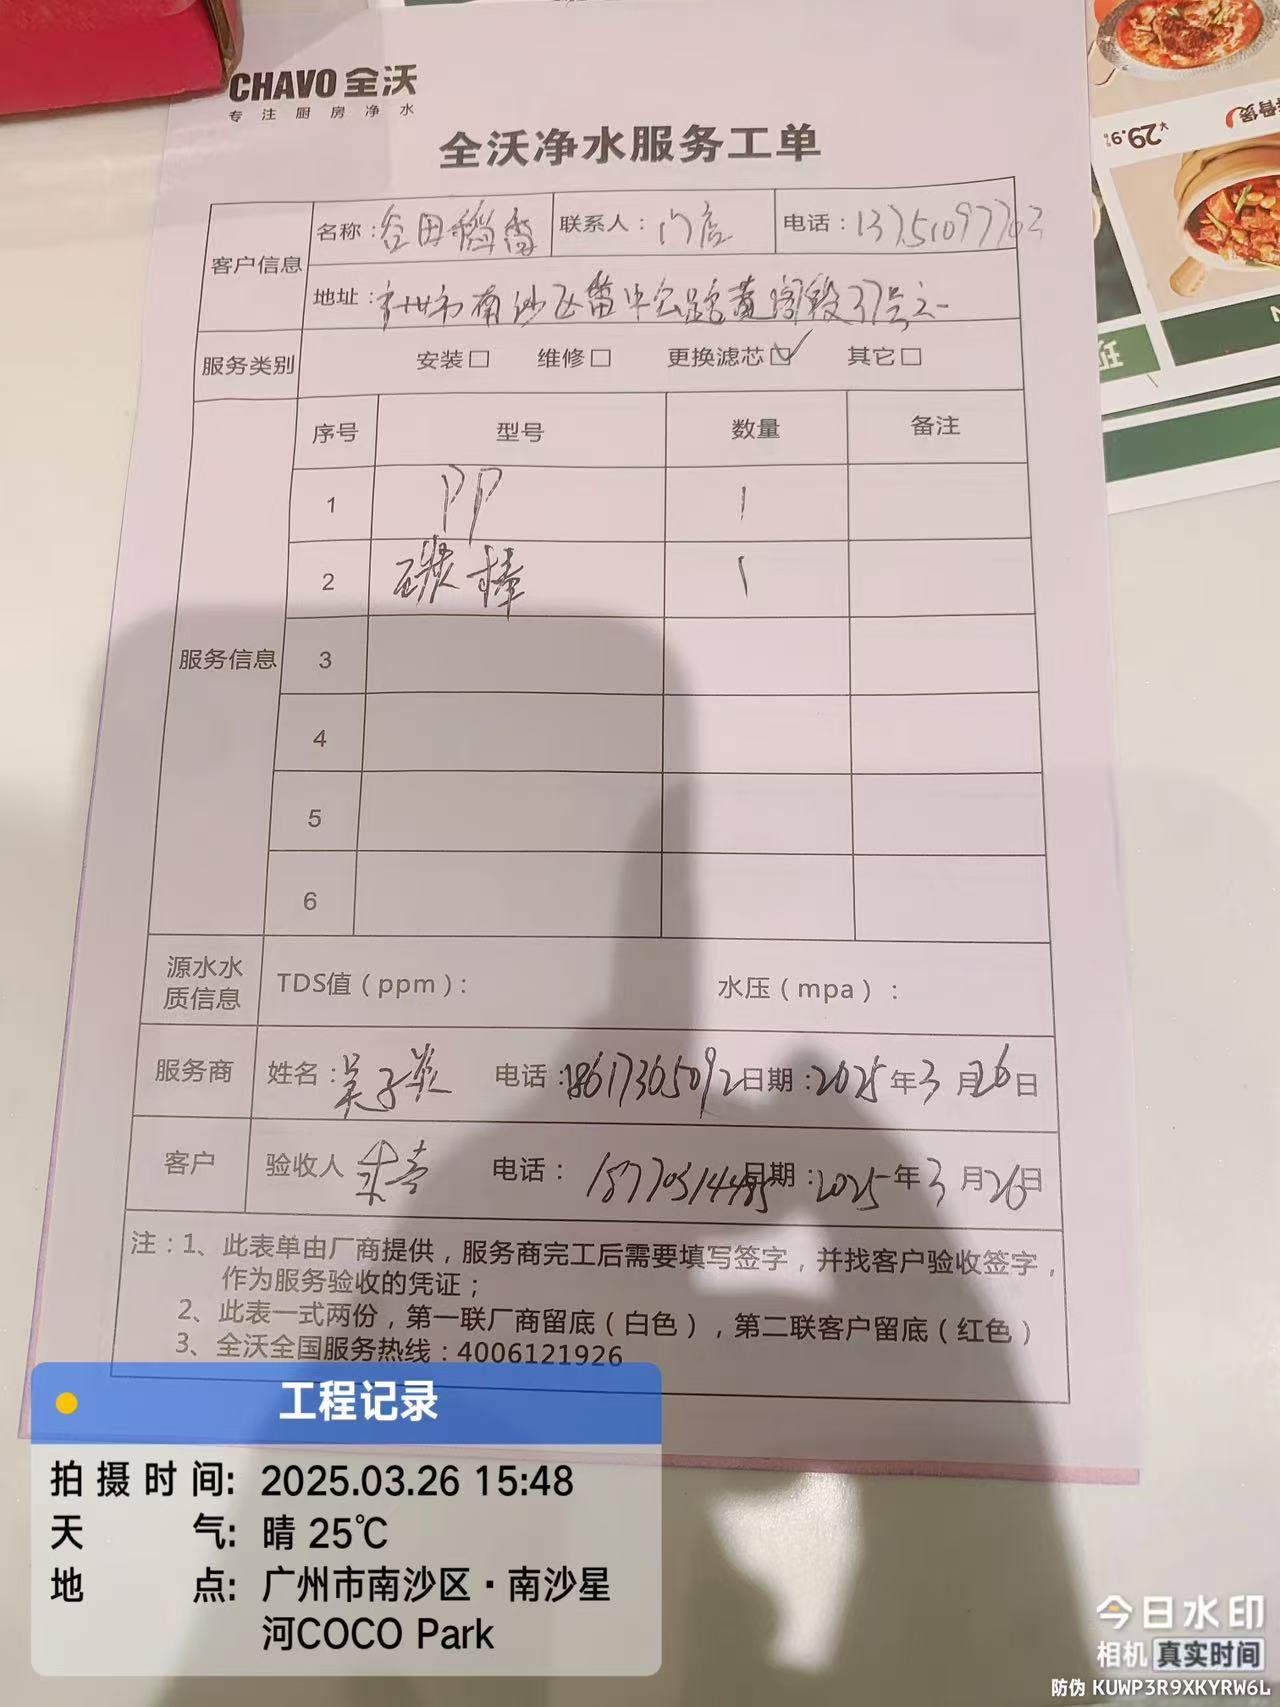 CHAVO 全沃
专注厨房净水
全沃净水服务工单
客户信息 名称：谷田稻香 联系人：门店 电话：13751097762
地址：广州市南沙区番中公路黄阁段37号之一
服务类别 安装□ 维修□ 更换滤芯☑ 其它□
服务信息 序号 型号 数量 备注
1 PP 1
2 碳棒 1
3
4
5
6
源水水质信息 TDS值（ppm）： 水压（mpa）：
服务商 姓名：吴子炎 电话：18617365092 日期：2025年3月26日
客户 验收人 电话：18770514485 日期：2025年3月26日
注：1、此表单由厂商提供，服务商完工后需要填写签字，并找客户验收签字，
作为服务验收的凭证；
2、此表一式两份，第一联厂商留底（白色），第二联客户留底（红色）
3、全沃全国服务热线：4006121926
工程记录
拍摄时间：2025.03.26 15:48
天气：晴 25℃
地点：广州市南沙区·南沙星
河COCO Park
今日水印
相机 真实时间
防伪 KUWP3R9XKYRW6L
¥29.9